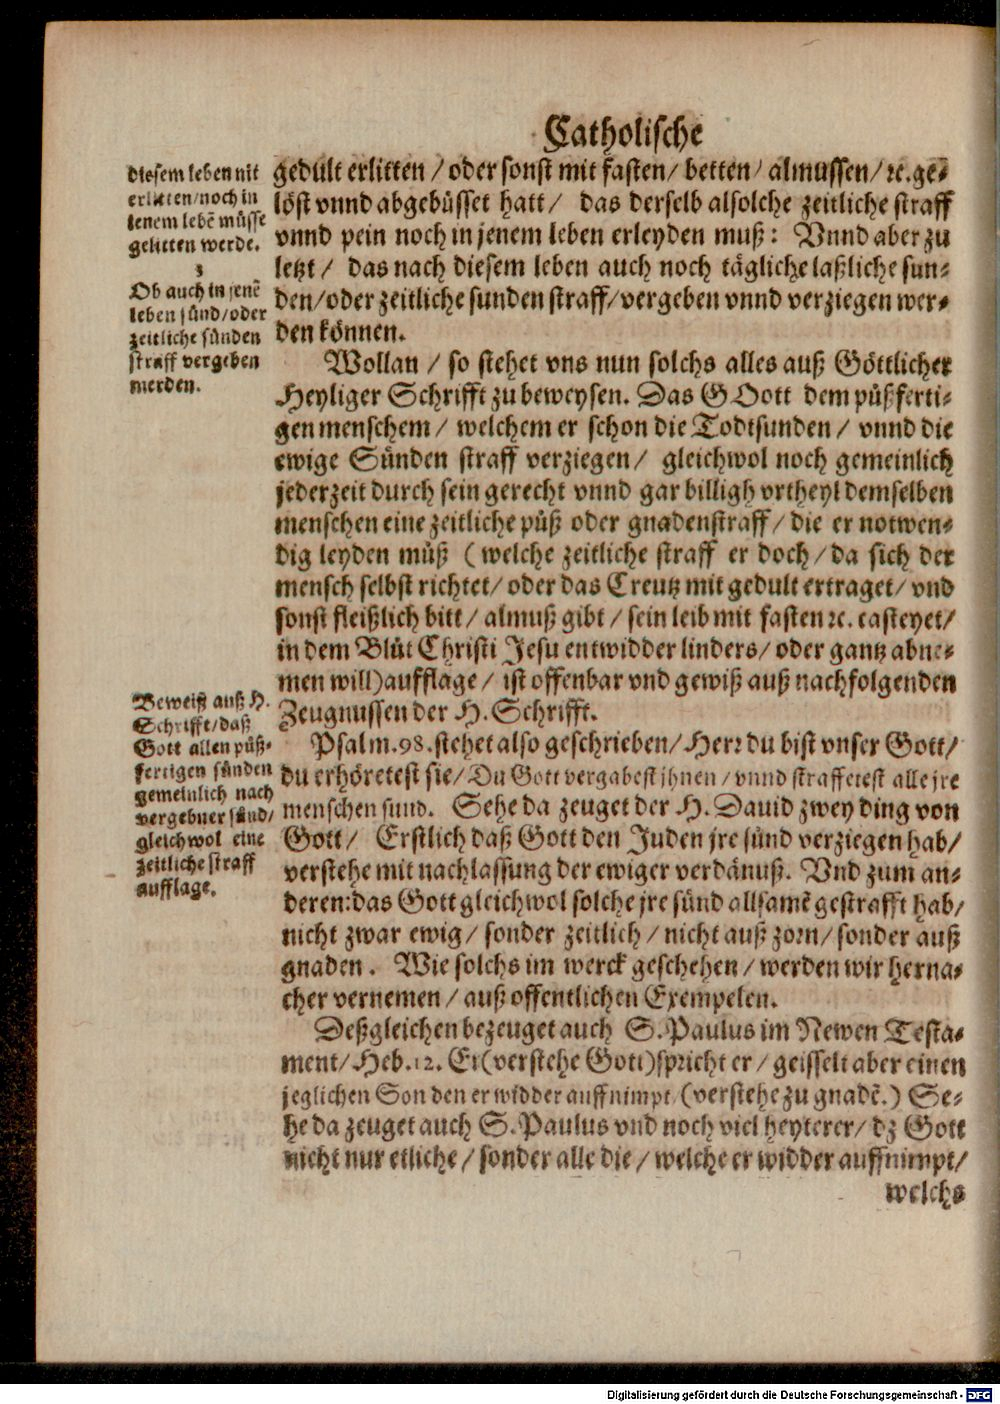 Catholische
diesem leben nit
erlitten/noch in
jenem lebẽ müsse
gelitten werde.
3
Ob auch in jenẽ
leben sünd/oder
zeitliche sünden
straff vergeben
werden.
gedult erlitten / oder sonst mit fasten/ betten/ almussen/ ꝛc. ge-
löst vnnd abgebüsset hatt / das derselb alsolche zeitliche straff
vnnd pein noch in jenem leben erleyden muß: Vnnd aber zu
letzt / das nach diesem leben auch noch tägliche laßliche sun-
den/oder zeitliche sunden straff/vergeben vnnd verziegen wer-
den können.
Wollan / so stehet vns nun solchs alles auß Göttlicher
Heyliger Schrifft zu beweysen. Das GOott dem püßferti-
gen menschem / welchem er schon die Todtsunden / vnnd die
ewige Sünden straff verziegen/ gleichwol noch gemeinlich
jederzeit durch sein gerecht vnnd gar billigh vrtheyl demselben
menschen eine zeitliche püß oder gnadenstraff/ die er notwen-
dig leyden müß ( welche zeitliche straff er doch/ da sich der
mensch selbst richtet/ oder das Creutz mit gedult ertraget/ vnd
sonst fleißlich bitt / almuß gibt / sein leib mit fasten ꝛc. casteyet/
in dem Blüt Christi Jesu entwidder linders/ oder gantz abne-
men will) aufflage / ist offenbar vnd gewiß auß nachfolgenden
Zeugnussen der H. Schrifft.
Beweiß auß H.
Schrifft/daß
Gott allen püß-
fertigen sünden
gemeinlich nach
vergebner sünd/
gleichwol eine
zeitliche straff
aufflage.
Psalm.98. stehet also geschrieben/ Herr du bist vnser Gott/
du erhöretest sie/ Du Gott vergabest jhnen / vnnd straffetest alle jre
menschen sund. Sehe da zeuget der H. Dauid zwey ding von
Gott/ Erstlich daß Gott den Juden jre sünd verziegen hab/
verstehe mit nachlassung der ewiger verdänuß. Vnd zum an-
deren: das Gott gleichwol solche jre sünd allsamẽ gestrafft hab/
nicht zwar ewig/ sonder zeitlich / nicht auß zorn/ sonder auß
gnaden. Wie solchs im werck geschehen / werden wir herna-
cher vernemen / auß offentlichen Exempelen.
Deßgleichen bezeuget auch S. Paulus im Newen Testa-
ment/ Heb.12. Er(verstehe Gott) spricht er / geisselt aber einen
jeglichen Son den er widder auffnimpt (verstehe zu gnadẽ.) Se-
he da zeuget auch S. Paulus vnd noch viel heyterer/ dz Gott
nicht nur etliche / sonder alle die / welche er widder auffnimpt/
welchs
Digitalisierung gefördert durch die Deutsche Forschungsgemeinschaft - DFG